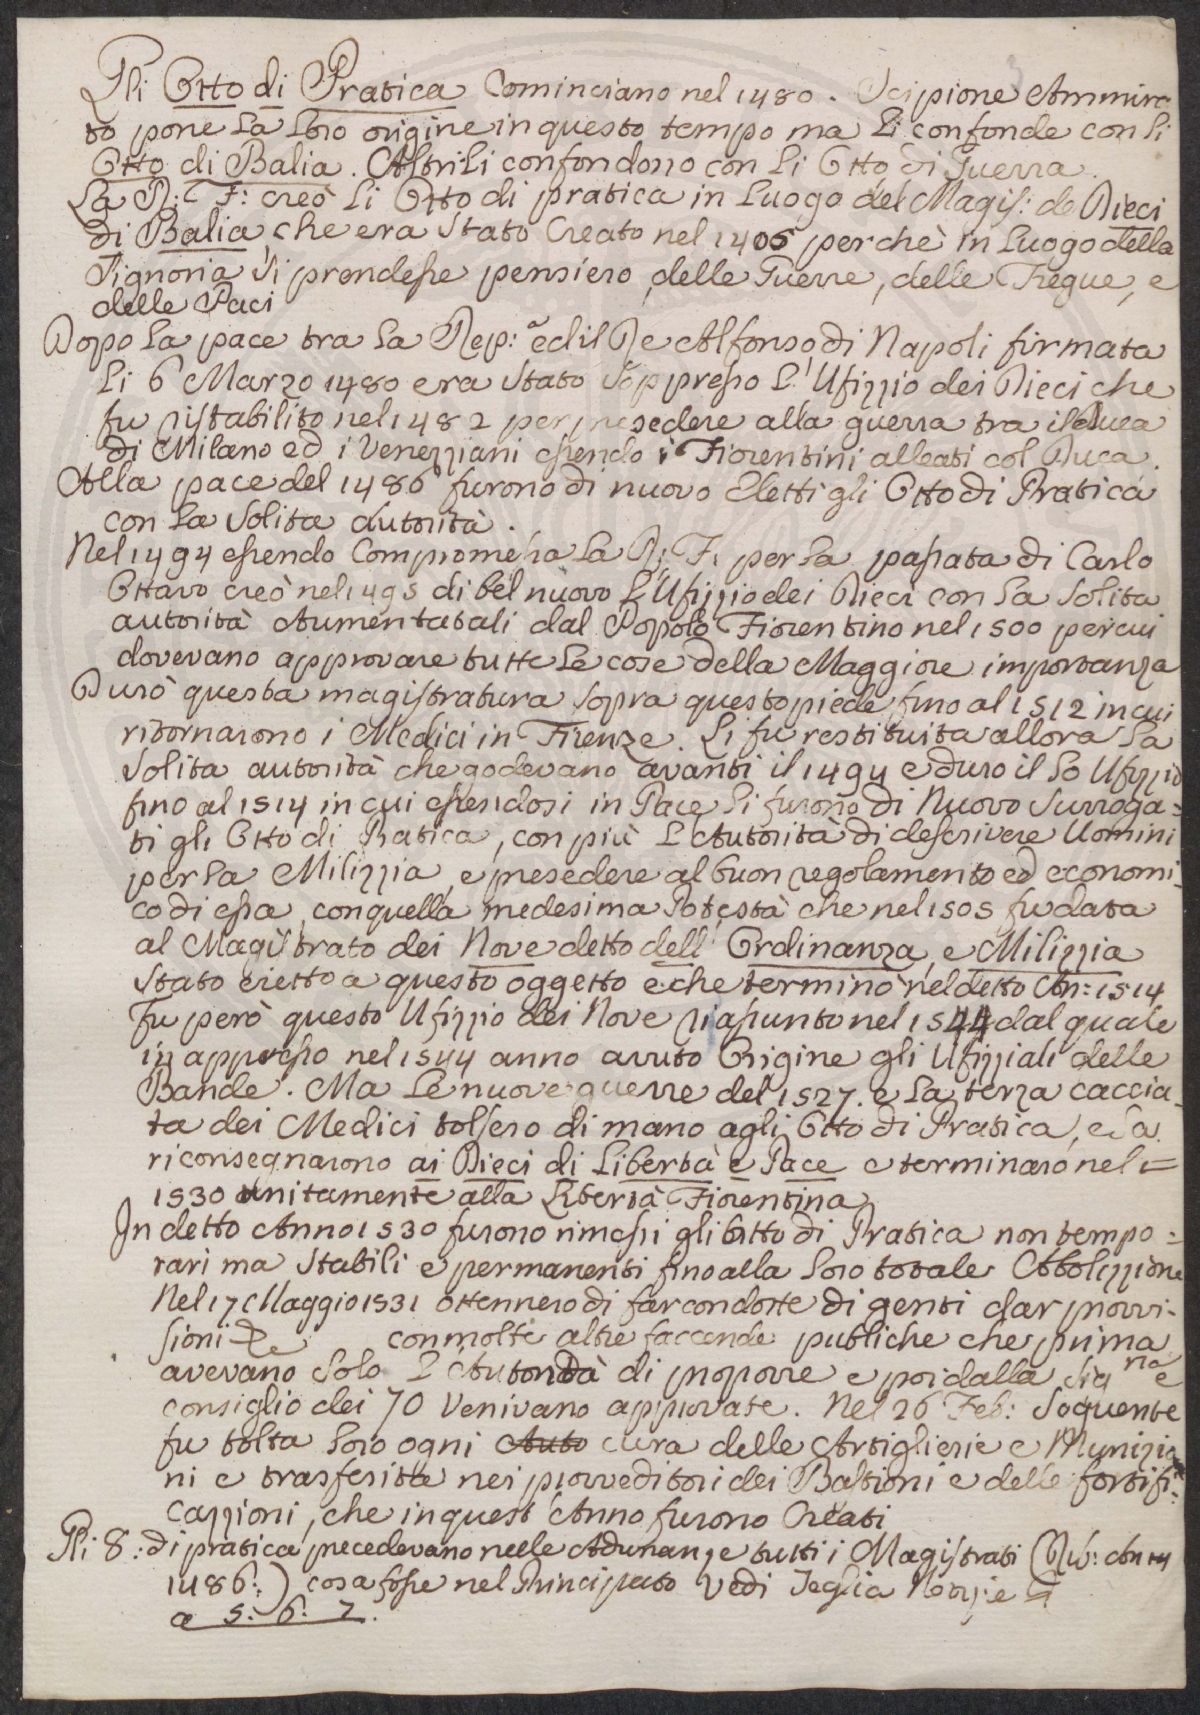 Gli Otto di Pratica Cominciano nel 1480. Scipione Ammira
to pone la loro origine in questo tempo ma li confonde con li
Otto di Balia. Altri li confondono con li Otto di Guerra.
La R: F: creò li Otto di pratica in luogo del Magis: de Dieci
di Balia, che era stato Creato nel 1406 perchè in luogo della
Signoria si prendesse pensiero, delle Guerre, delle Tregue, e
delle Paci
Dopo la pace tra la Rep:ª ed il Re Alfonso di Napoli firmata
li 6 Marzo 1480 era stato soppresso l'Ufizzio dei Dieci che
fu ristabilito nel 1482 per presedere alla guerra tra il Duca
di Milano ed i Venezziani essendo i Fiorentini alleati col Duca.
Alla pace del 1486 furono di nuovo eletti gli Otto di Pratica
con la solita autorità.
Nel 1494 essendo Compromessa la R: F: per la passata di Carlo
Ottavo creò nel 1495 di bel nuovo l'Ufizzio dei Dieci con la solita
autorità Aumentatali dal Popolo Fiorentino nel 1500 per cui
dovevano approvare tutte le cose della Maggiore importanza
Durò questa magistratura sopra questo piede fino al 1512 in cui
ritornarono i Medici in Firenze. Li fu restituita allora la
solita autorità che godevano avanti il 1494 e durò il lo Ufizzio
fino al 1514 in cui essendosi in Pace li furono di Nuovo surroga=
ti gli Otto di Pratica, con più l'Autorità di descrivere Uomini
per la Milizzia, e presedere al buon regolamento ed economi-
co di essa, con quella medesima Potestà che nel 1505 fu data
al Magistrato dei Nove detto dell' Ordinanza, e Milizzia
stato eretto a questo oggetto e che terminò nel detto An: 1514
Fu però questo Ufizzio dei Nove riassunto nel 1544 dal quale
in appresso nel 1544 anno avuto Origine gli Ufizziali delle
Bande. Ma le nuove guerre del 1527. e la terza caccia-
ta dei Medici tolsero di mano agli Otto di Pratica, e la
riconsegnarono ai Dieci di Libertà e Pace e terminarò nel =
1530 unitamente alla Libertà Fiorentina
In detto Anno 1530 furono rimessi gli Otto di Pratica non tempo=
rari ma stabili e permanenti fino alla loro totale Abbolizzione
Nel 17 Maggio 1531 ottennero di far condotte di genti dar provvi-
sioni &c con molte altre faccende publiche che prima
avevano solo l'Autorità di proporre e poi dalla Sig:ria e
consiglio dei 70 venivano approvate. Nel 26 Feb: Seguente
fu tolta loro ogni Auto cura delle Artiglierie e Munizio
ni e trasferitta nei provveditori dei Bastioni e delle fortifi=
cazzioni, che in quest' Anno furono Creati
Gli 8: di pratica precedevano nelle Adunanze tutti i Magistrati (Riv: An
1486:) cosa fosse nel Principato Vedi Teglia Notizie
a 5: 6: 7.